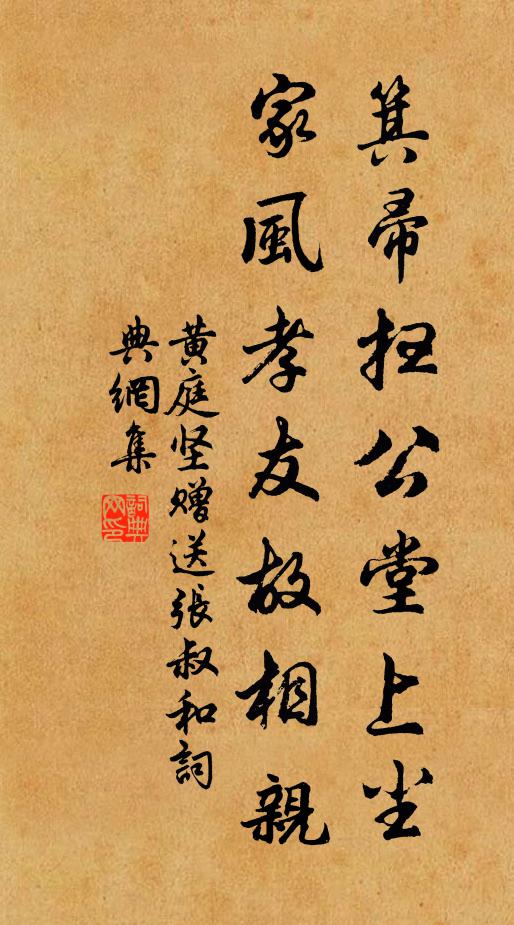 箕帚扫公堂上尘
家風孝友故相親
黄庭坚赠送張叔和詞
典網集
詞典
网印